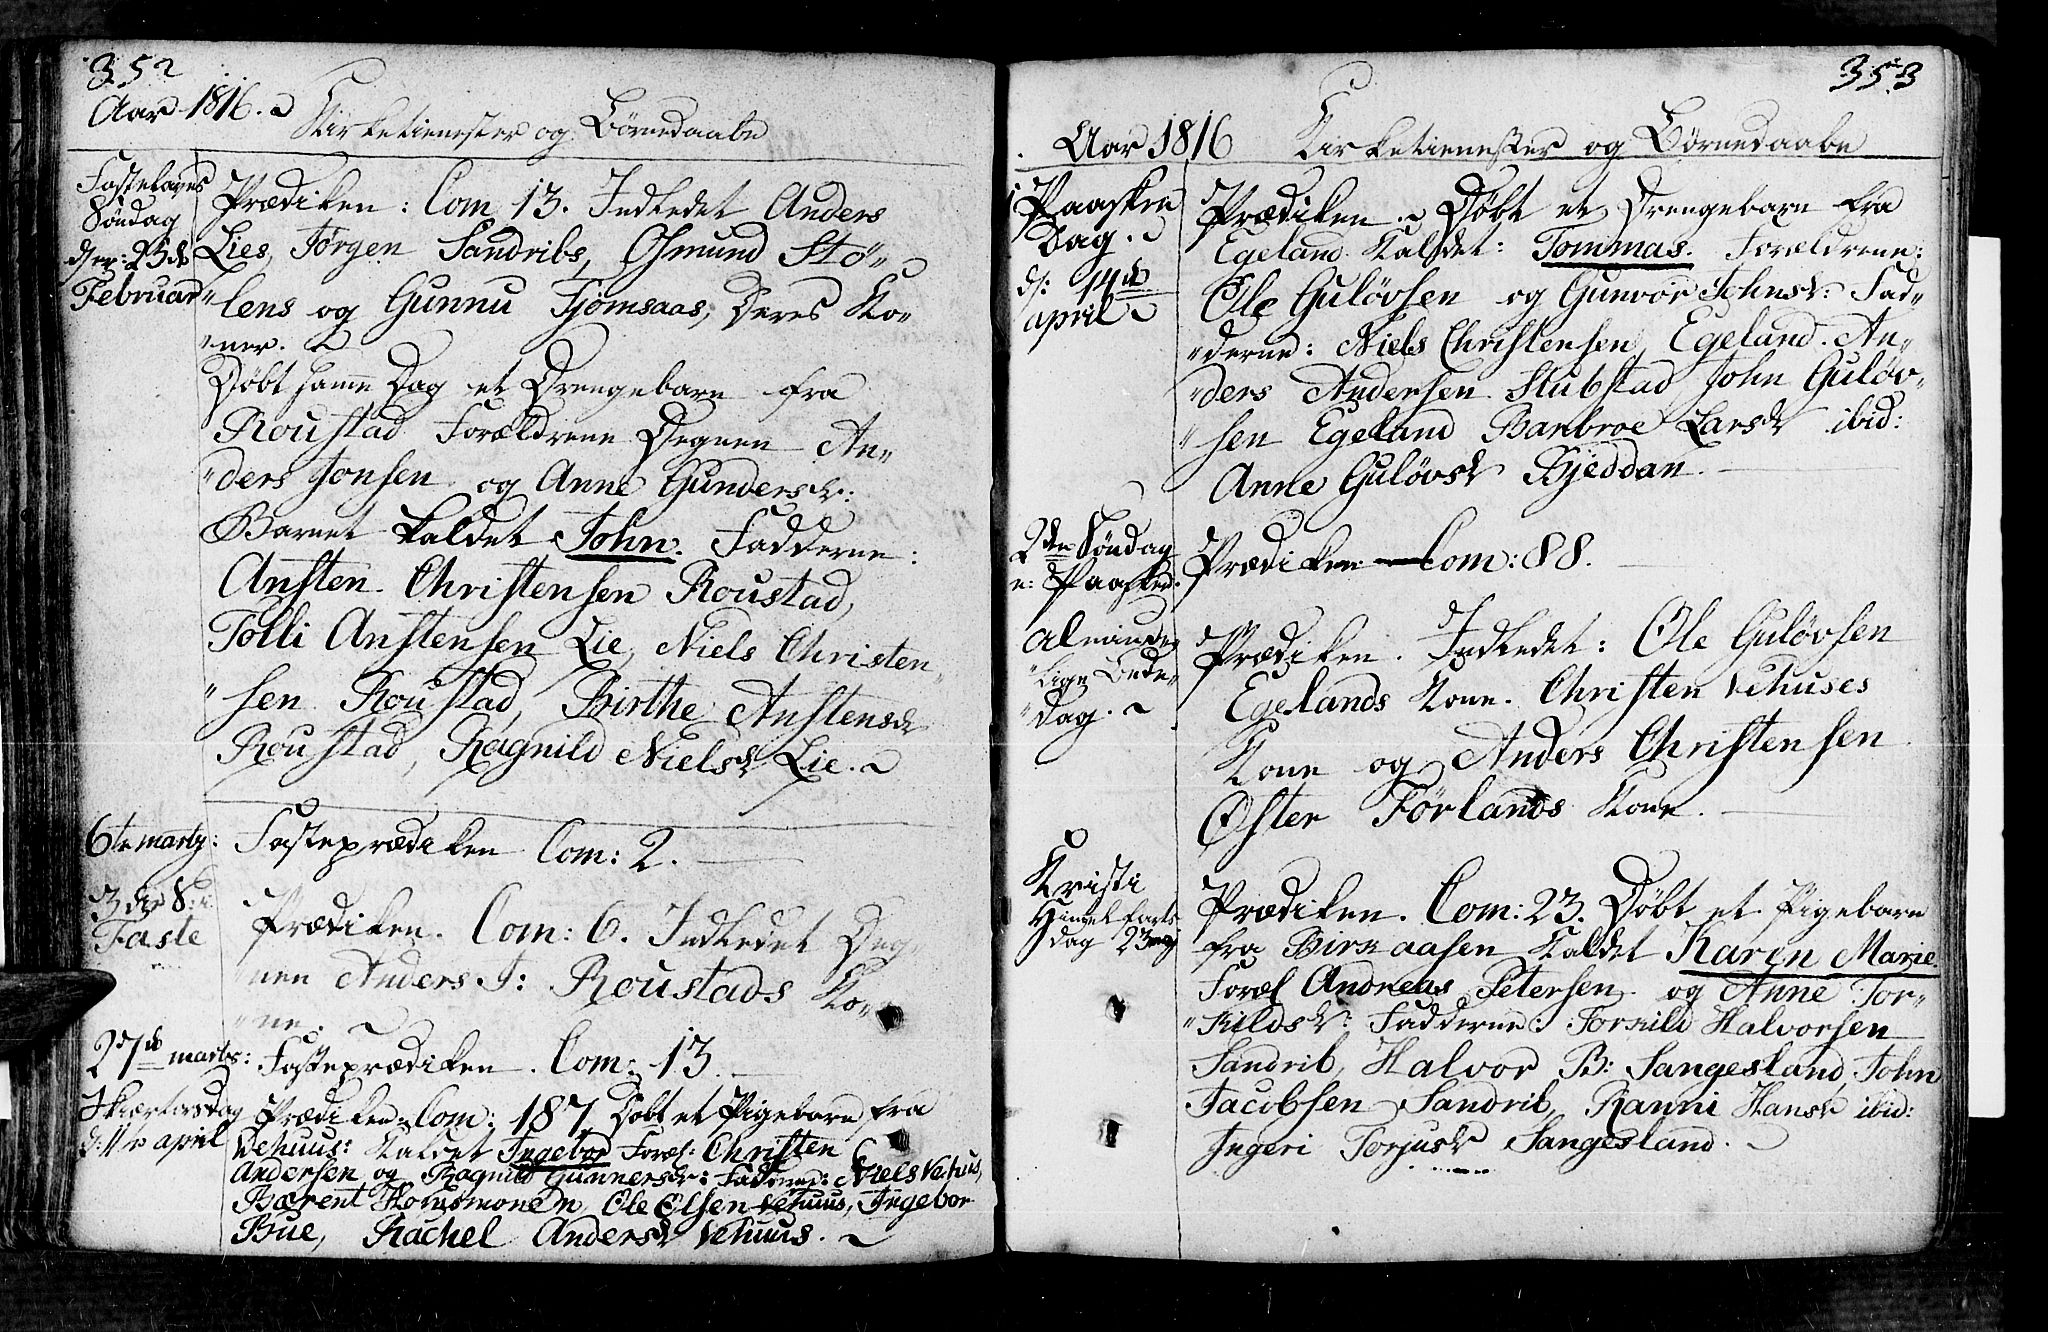 352
Aar 1816.
Kirketienester og Børnedaabe
Fastelavns
Søndag
Februar
Prædiken: Com 13. Indledet Anders
Lies, Jørgen Sandribs, Osmund Stø„
lens og Gunnu Tjomsaas, Deres Ko„
„ner.
Døbt samme Dag et Drengebarn fra
Roustad Forældrene Degnen An„
„ders Jonsen og Anne Gundersdr:
Barnet kaldet John. Fadderne:
Ansten Christensen Roustad,
Tolli Anstensen Lie, Niels Christen„
„sen Roustad, Birthe Anstensdr
Roustad, Ragnild Nielsdr Lie.
6te martz:
Fasteprædiken Com: 2.
3de S: i
Faste
Prædiken. Com: 6. Indledet Deg
„nen Anders J: Roustads Ko„
„ne.
27de marts:
Fasteprædiken. Com: 13.
Skiærtorsdag
d: 11te april
Prædiken: Com: 187 Døbt et Pigebarn fra
Vehuus: Kaldet Ingebor Foræl: Christen
Andersen og Ragnild Gunnersdr: Fadderne: Niels Vehuus,
Bærent Ole Olsen Vehuus, Ingebor
Bue, Rachel Andersdr Vehuus.
353
Aar 1816 Kirketienester og Børnedaabe
Paaske
Dag.
d: 14de
april
Prædiken. Døbt et Drengebarn fra
Egeland Kaldet: Tommas. Forældrene:
Ole Guløvsen og Gunvor Johnsdr: Fad„
„derne: Niels Christensen Egeland. An„
„ders Andersen Stubstad John Guløv„
„sen Egeland Barbroe Larsdr ibid:
Anne Guløvsdr Bjeddan.
2den Søndag
e: Paaske
Prædiken Com: 88.
Alminde„
„lige Bede„
„dag.
Prædiken. Indledet: Ole Guløvsen
Egelands Kone. Christen Vehuses
Kone og Anders Christensen
Øster Førlands Kone.
Kristi
Himmelfarts
dag 23 maj
Prædiken. Com: 23. Døbt et Pigebarn
fra Birkaasen Kaldet Karen Marie.
Foræl Andreas Petersen og Anne Tor„
„kildsdr: Fadderne: Torkild Halvorsen
Sandrib, Halvor B: Sangesland, John
Jacobsen Sandrib, Ranni Hansdr ibid:
Ingeri Torjusdr Sangesland.